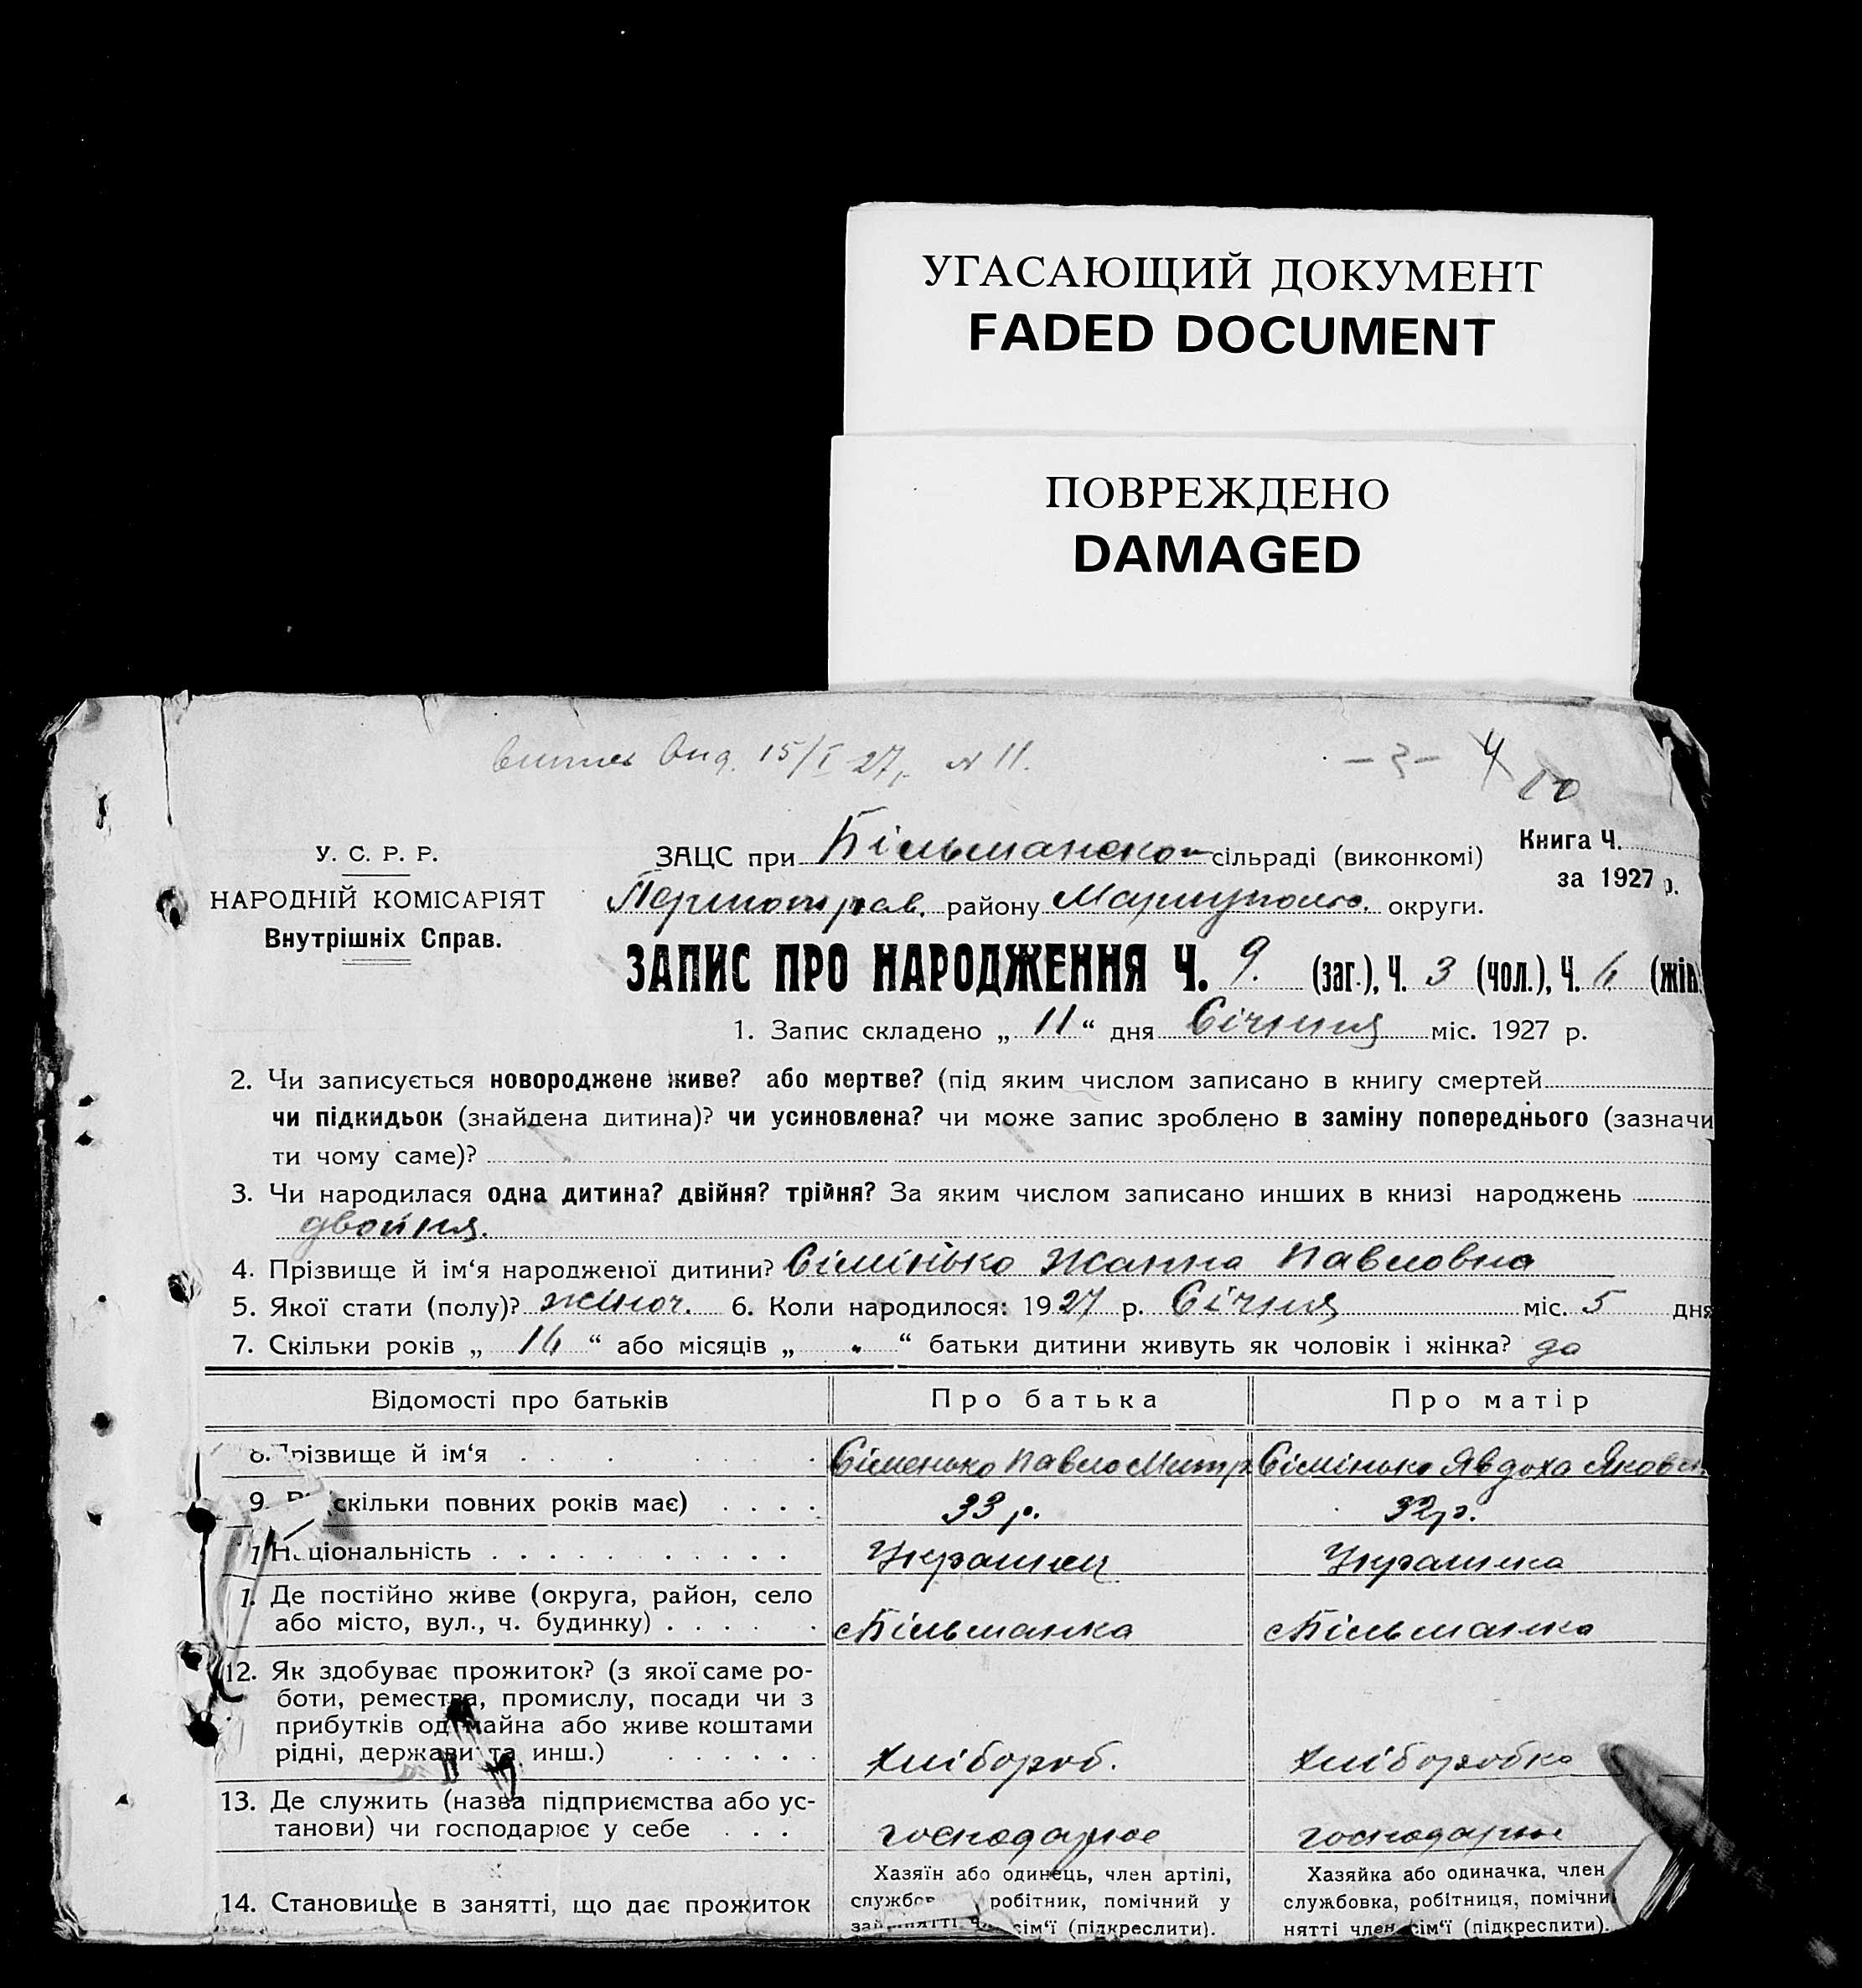 УГАСАЮЩИЙ ДОКУМЕНТ
FADED DOCUMENT
ПОВРЕЖДЕНО
DAMAGED
15/I 27, N 11.
- 3 - 4
10
У. С. Р. Р.
НАРОДНІЙ КОМІСАРІЯТ
Внутрішніх Справ.
ЗАЦС при Більманском сільраді (виконкомі)
Книга Ч.
за 1927 р.
Першотрав. району Маріуполю. округи.
ЗАПИС ПРО НАРОДЖЕННЯ Ч. 9. (заг.), Ч. 3 (чол.), Ч. 6 (жін.
1. Запис складено „ 11 “ дня Січння міс. 1927 р.
2. Чи записується новороджене живе? або мертве? (під яким числом записано в книгу смертей
чи підкидьок (знайдена дитина)? чи усиновлена? чи може запис зроблено в заміну попереднього (зазначи
ти чому саме)?
3. Чи народилася одна дитина? двійня? трійня? За яким числом записано инших в книзі народжень
двойня.
4. Прізвище й ім‘я народженої дитини? Сімінько Жанна Павловна
5. Якої стати (полу)? жіноч. 6. Коли народилося: 1927 р. Січня міс. 5 дня
7. Скільки років „ 14 “ або місяців „ “ батьки дитини живуть як чоловік і жінка? да
Відомості про батьків
Про батька
Про матір
8. Прізвище й ім‘я
Сіменько Павло Митр
Сімінько Явдоха Яковл.
9. скільки повних років має)
33 р.
32 р.
Національність
Украінец
Украінка
Де постійно живе (округа, район, село
або місто, вул., ч. будинку)
сБільманка
сБільманка
12. Як здобуває прожиток? (з якої саме ро-
боти, ремества, промислу, посади чи з
прибутків од майна або живе коштами
рідні, держави та инш.)
хлібороб.
хліборобка
13. Де служить (назва підприємства або ус-
танови) чи господарює у себе
господарює
господарює
14. Становище в занятті, що дає прожиток
Хазяїн або одинець, член артілі,
службов робітник, помічний у
сім‘ї (підкреслити).
Хазяйка або одиначка, член
службовка, робітниця, помічни
нятті член сім‘ї (підкреслити).